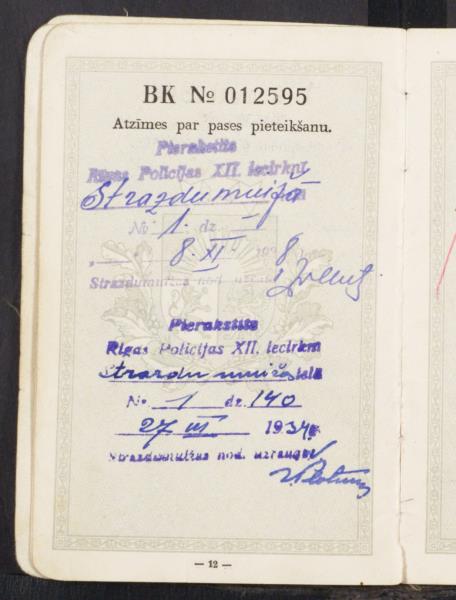 BK № 012595
Atzīmes par pases pieteikšanu.
Pierakstīts
Rīgas Policijas XII. iecirknī
Strazdumuižā
№ 1. dz.
8. XI 193 8
Strazdumuižas nod. uzraugs
Pierakstīts
Rīgas Policijas XII. iecirknī
Strazdu muižas ielā
№ 1 dz. 140
27 III 193
Strazdumuižas nod. uzraugs
— 12 —